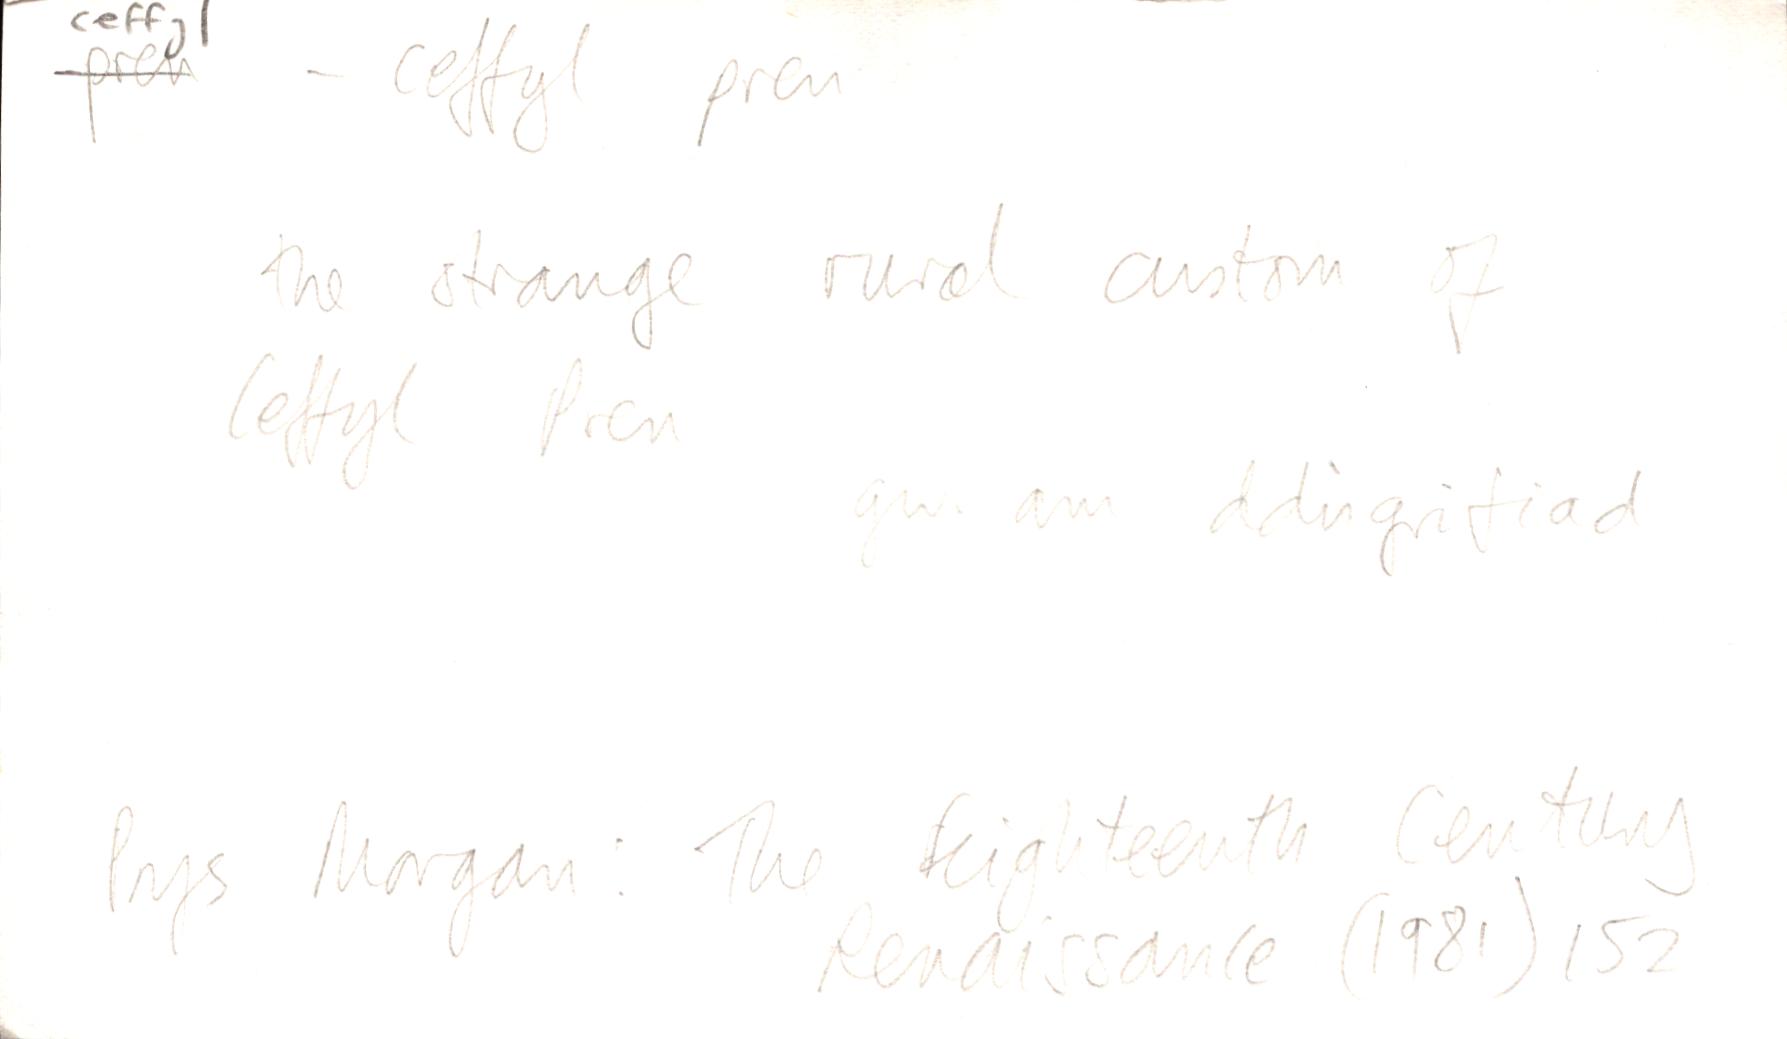 ceffyl
pren - ceffyl pren
the strange rural custom of
Ceffyl Pren
gw. am ddisgrifiad
Prys Morgan: The Eighteenth Century
Renaissance (1981) 152